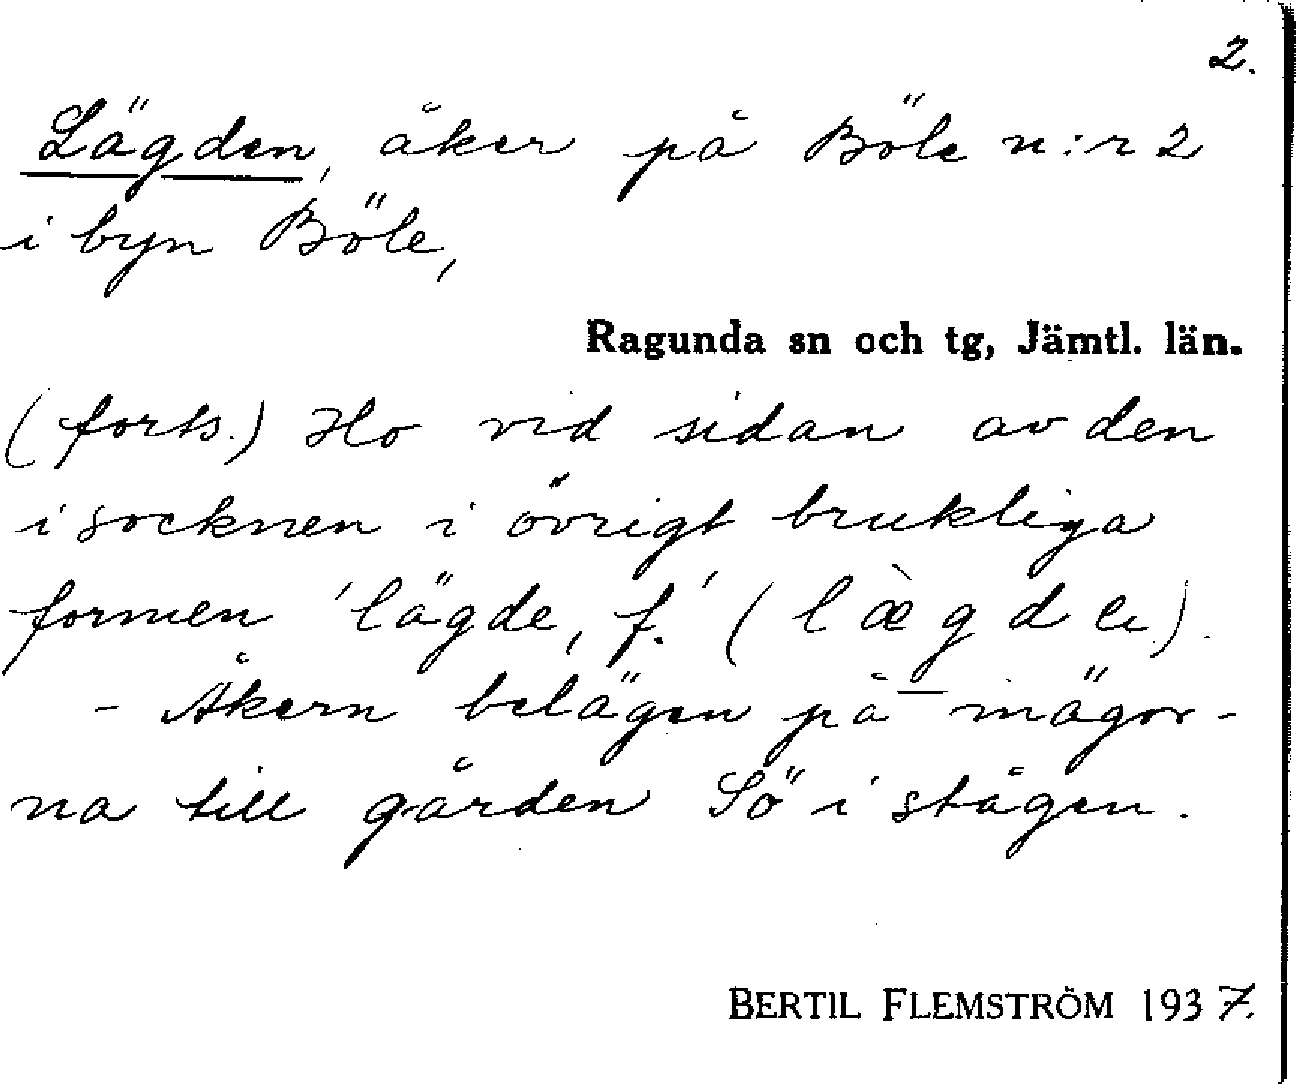 2.
Lägden, åker på Böle n:r 2
i byn Böle,
Ragunda sn och tg, Jämtl. län.
(forts.) Ho vid sidan av den
i socknen i övrigt brukliga
formen 'lägde, f.' (
- Åkern belägen på inägor-
na till gården Sö i stågen.
BERTIL FLEMSTRÖM 1937.